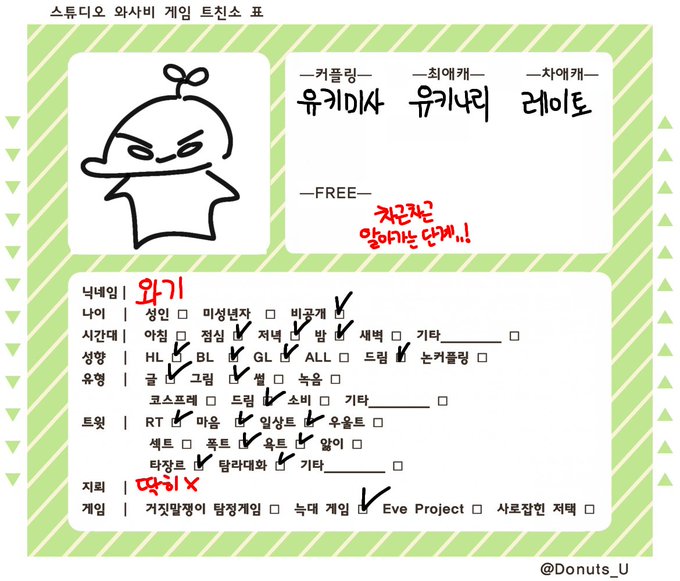 스튜디오 와사비 게임 트친소 표
—커플링— —최애캐— —차애캐—
유키미사 유키나리 레이토
—FREE—
차근차근
알아가는 단계..!
닉네임 | 와기
나이 | 성인 □ 미성년자 □ 비공개 ☑
시간대 | 아침 □ 점심 ☑ 저녁 ☑ 밤 ☑ 새벽 □ 기타________ □
성향 | HL ☑ BL ☑ GL ☑ ALL □ 드림 ☑ 논커플링 □
유형 | 글 ☑ 그림 ☑ 썰 □ 녹음 □
코스프레 □ 드림 ☑ 소비 □ 기타________ □
트윗 | RT ☑ 마음 ☑ 일상트 ☑ 우울트 □
섹트 □ 폭트 ☑ 욕트 ☑ 앓이 □
타장르 ☑ 탐라대화 ☑ 기타________ □
지뢰 | 딱히 X
게임 | 거짓말쟁이 탐정게임 □ 늑대 게임 ☑ Eve Project □ 사로잡힌 저택 □
@Donuts_U